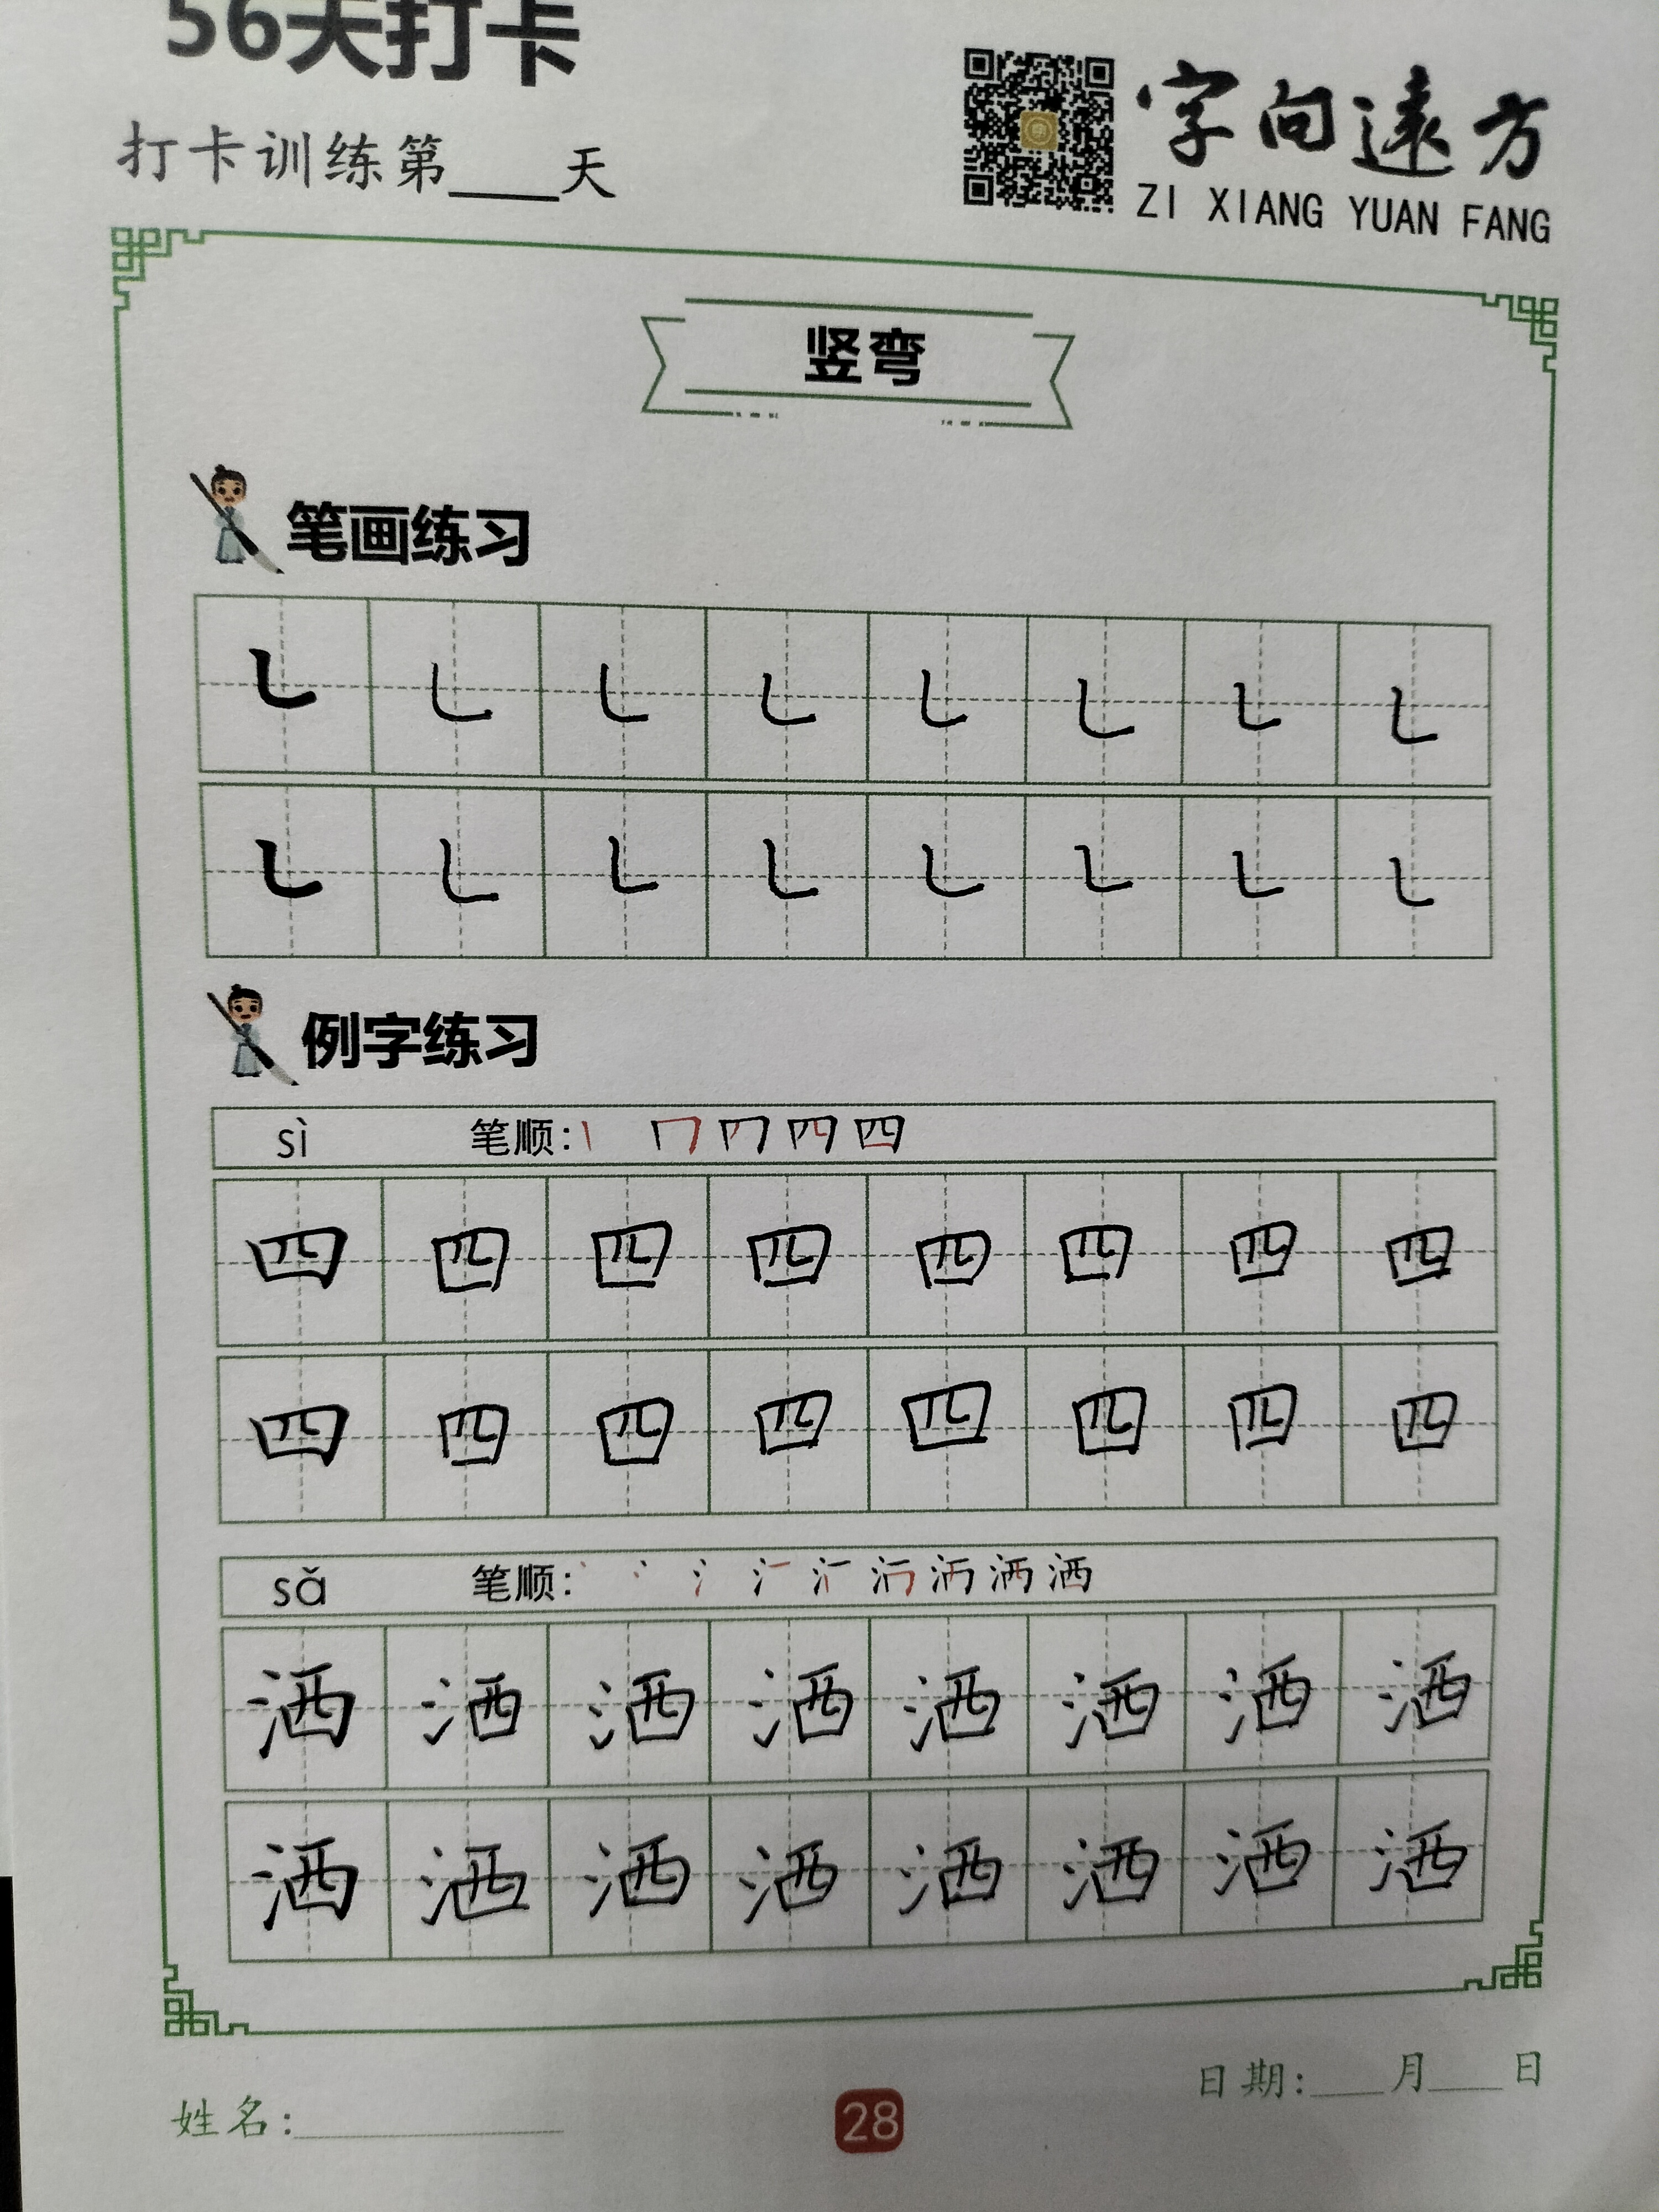 56天打卡
打卡训练第____天
字向遠方
ZI XIANG YUAN FANG
竖弯
笔画练习
㇄ ㇄ ㇄ ㇄ ㇄ ㇄ ㇄ ㇄
㇄ ㇄ ㇄ ㇄ ㇄ ㇄ ㇄ ㇄
例字练习
sì 笔顺: 四
四 四 四 四 四 四 四 四
四 四 四 四 四 四 四 四
sǎ 笔顺: 洒
洒 洒 洒 洒 洒 洒 洒 洒
洒 洒 洒 洒 洒 洒 洒 洒
姓名:________
28
日期:___月___日